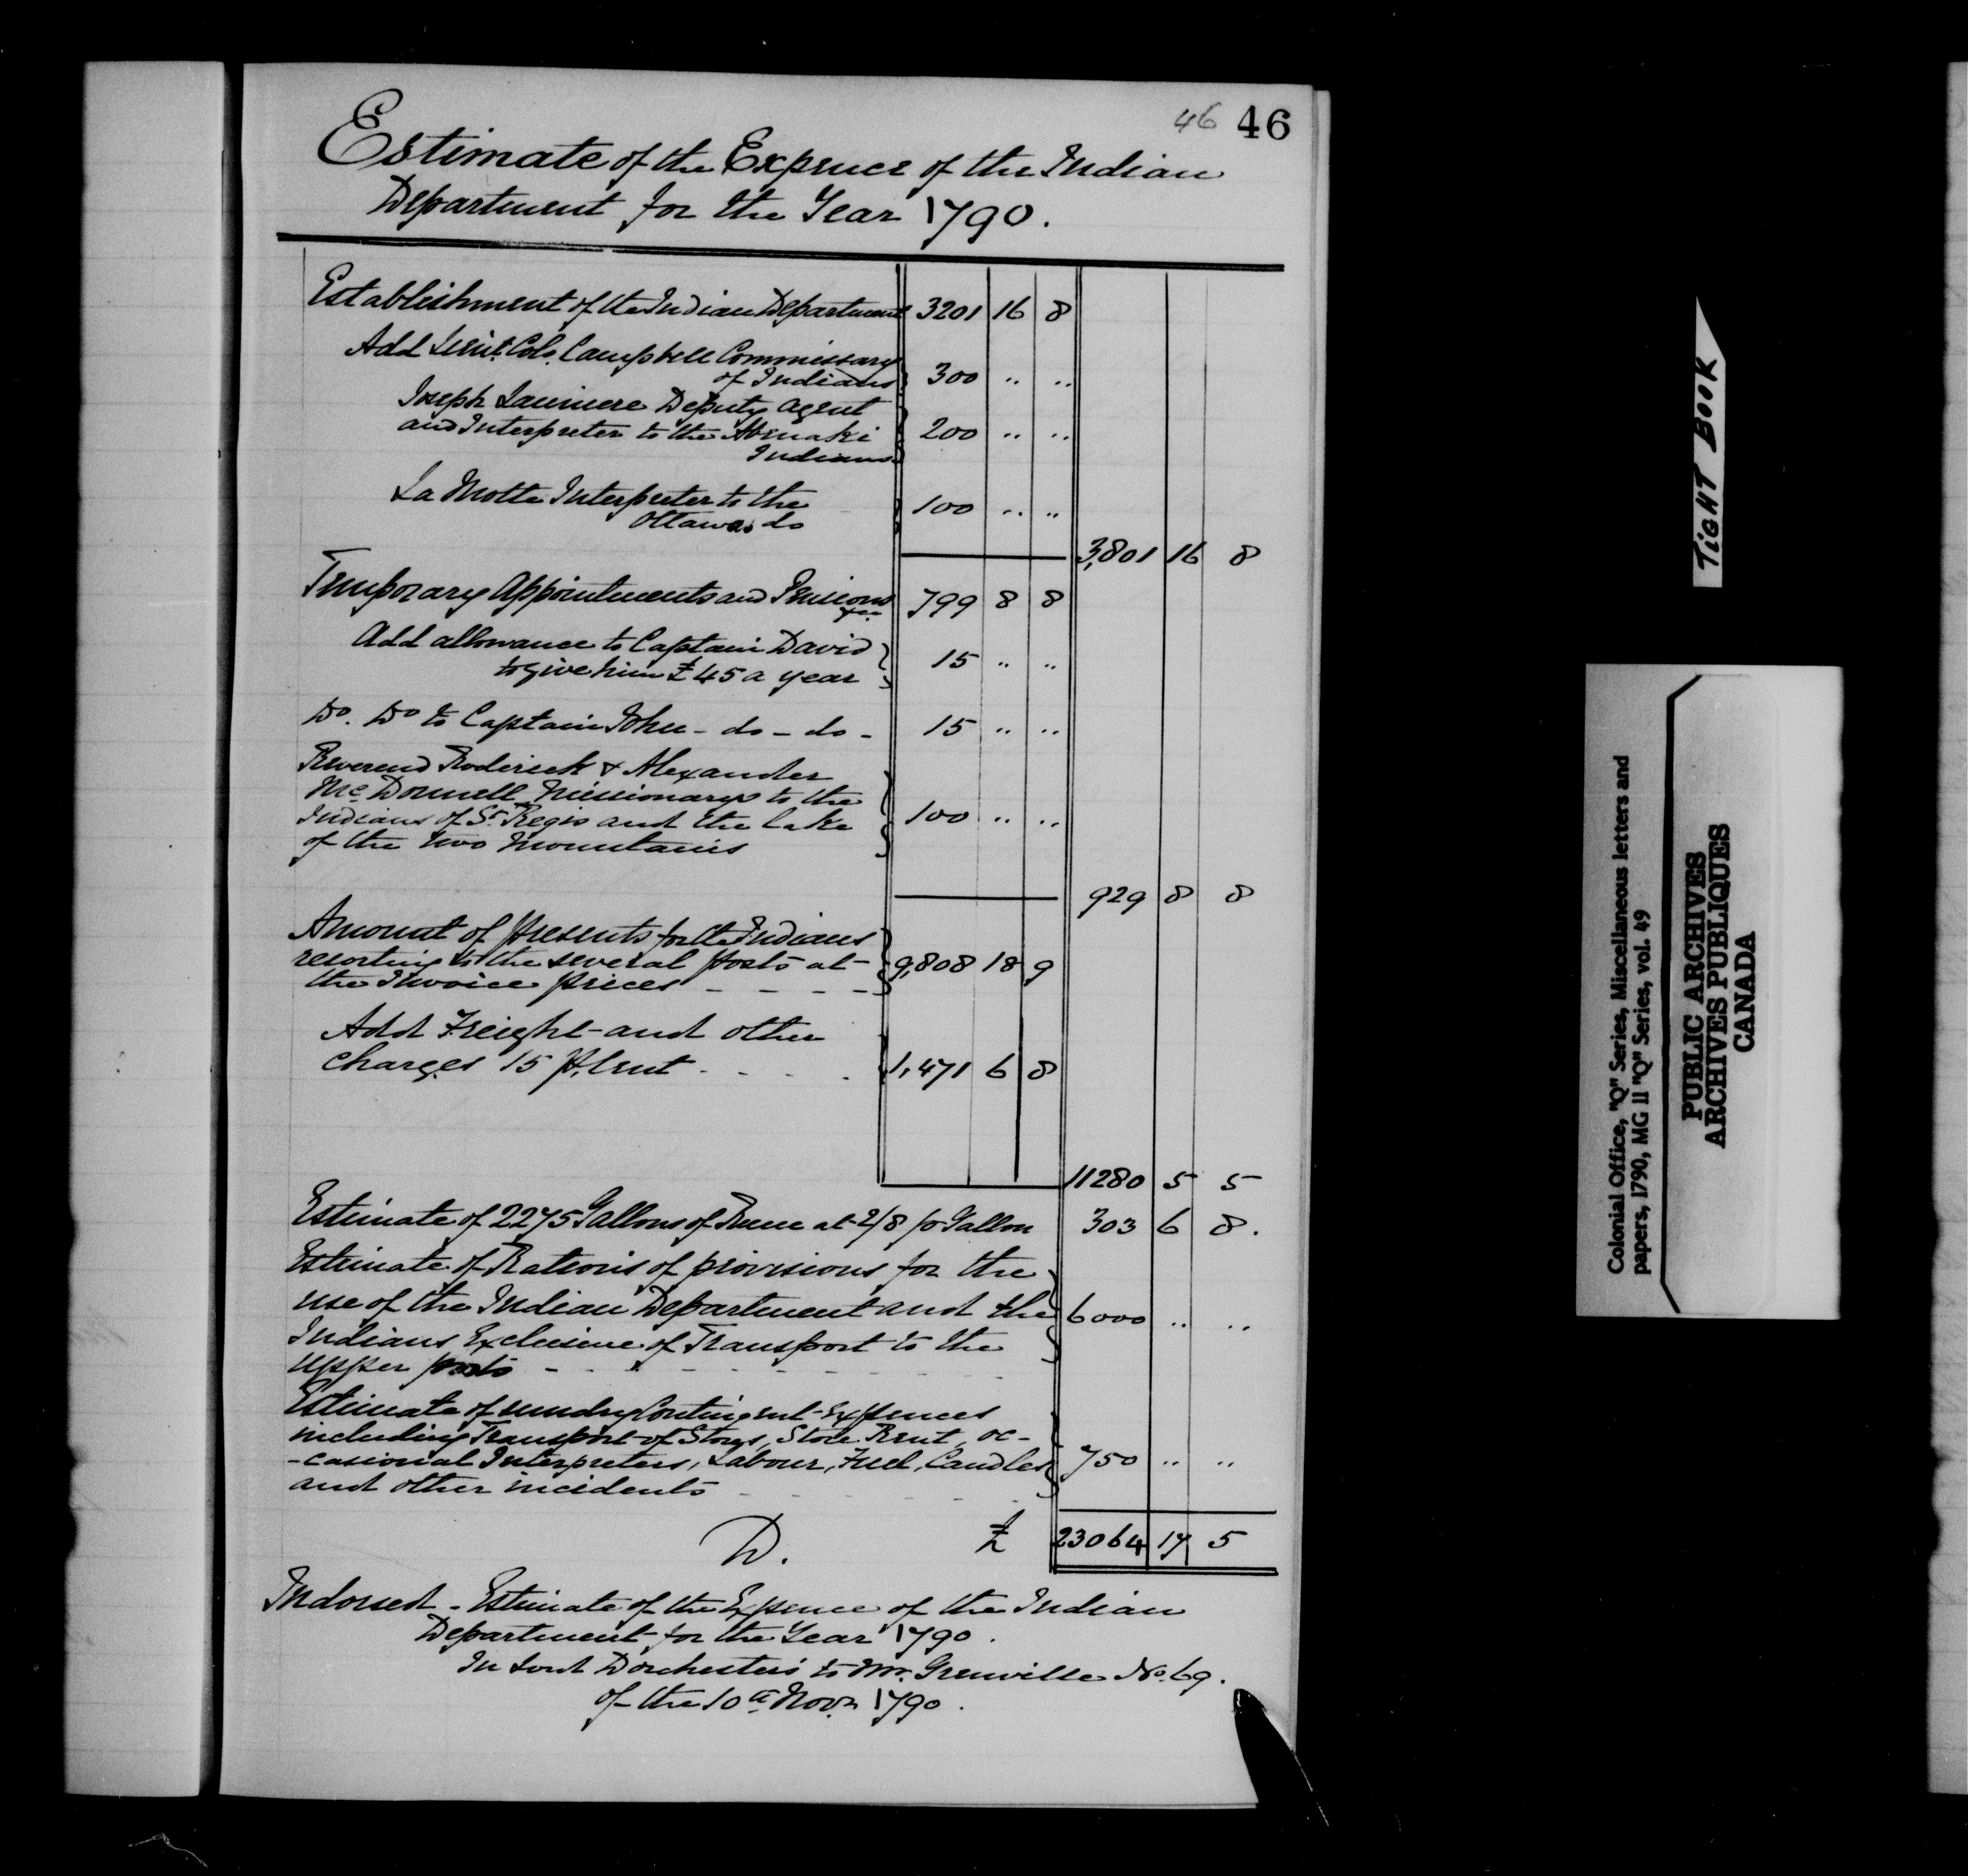 46 46
Estimate of the Expence of the Indian
Department for the Year 1790.
Establishment of the Indian Department 3201 16 8
Add Lieut. Col. Campbell Commissary
of Indians } 300 .. ..
Joseph Launiere Deputy Agent
and Interpreter to the Abenaki } 200 .. ..
Indians
La Motte Interpreter to the } 100 .. ..
Ottawas do
3,801 16 8
Temporary Appointments and Pensions &c. 799 8 8
Add allowance to Captain David
to give him £45 a year } 15 .. ..
Do. Do to Captain John - do - do - 15 .. ..
Reverend Roderick & Alexander
McDonnell Missionarys to the
Indians of St Regis and the Lake } 100 .. ..
of the two Mountains
929 8 8
Amount of presents for the Indians
resorting to the several posts at } 9,808 18 9
the Invoice prices - - - -
Add Freight and other
charges 15 p. Cent - - - - } 1,471 6 8
11280 5 5
Estimate of 2275 Gallons of Rum at 2/8 p Gallon 303 6 8.
Estimate of Rations of provisions for the
use of the Indian Department and the } 6000 .. ..
Indians Exclusive of Transport to the
upper posts - - - - - - - -
Estimate of sundry Contingent Expences
including Transport of Stores, Store Rent, oc-
-casional Interpreters, Labour, Fuel, Candles } 750 .. ..
and other incidents - - - - -
D. £ 23064 17 5
Indorsed - Estimate of the Expence of the Indian
Department for the Year 1790.
In Lord Dorchester's to Mr. Grenville No. 69.
of the 10th Novr. 1790.
TIGHT BOOK
Colonial Office, "Q" Series, Miscellaneous letters and
papers, 1790, MG 11 "Q" Series, vol. 49
PUBLIC ARCHIVES
ARCHIVES PUBLIQUES
CANADA